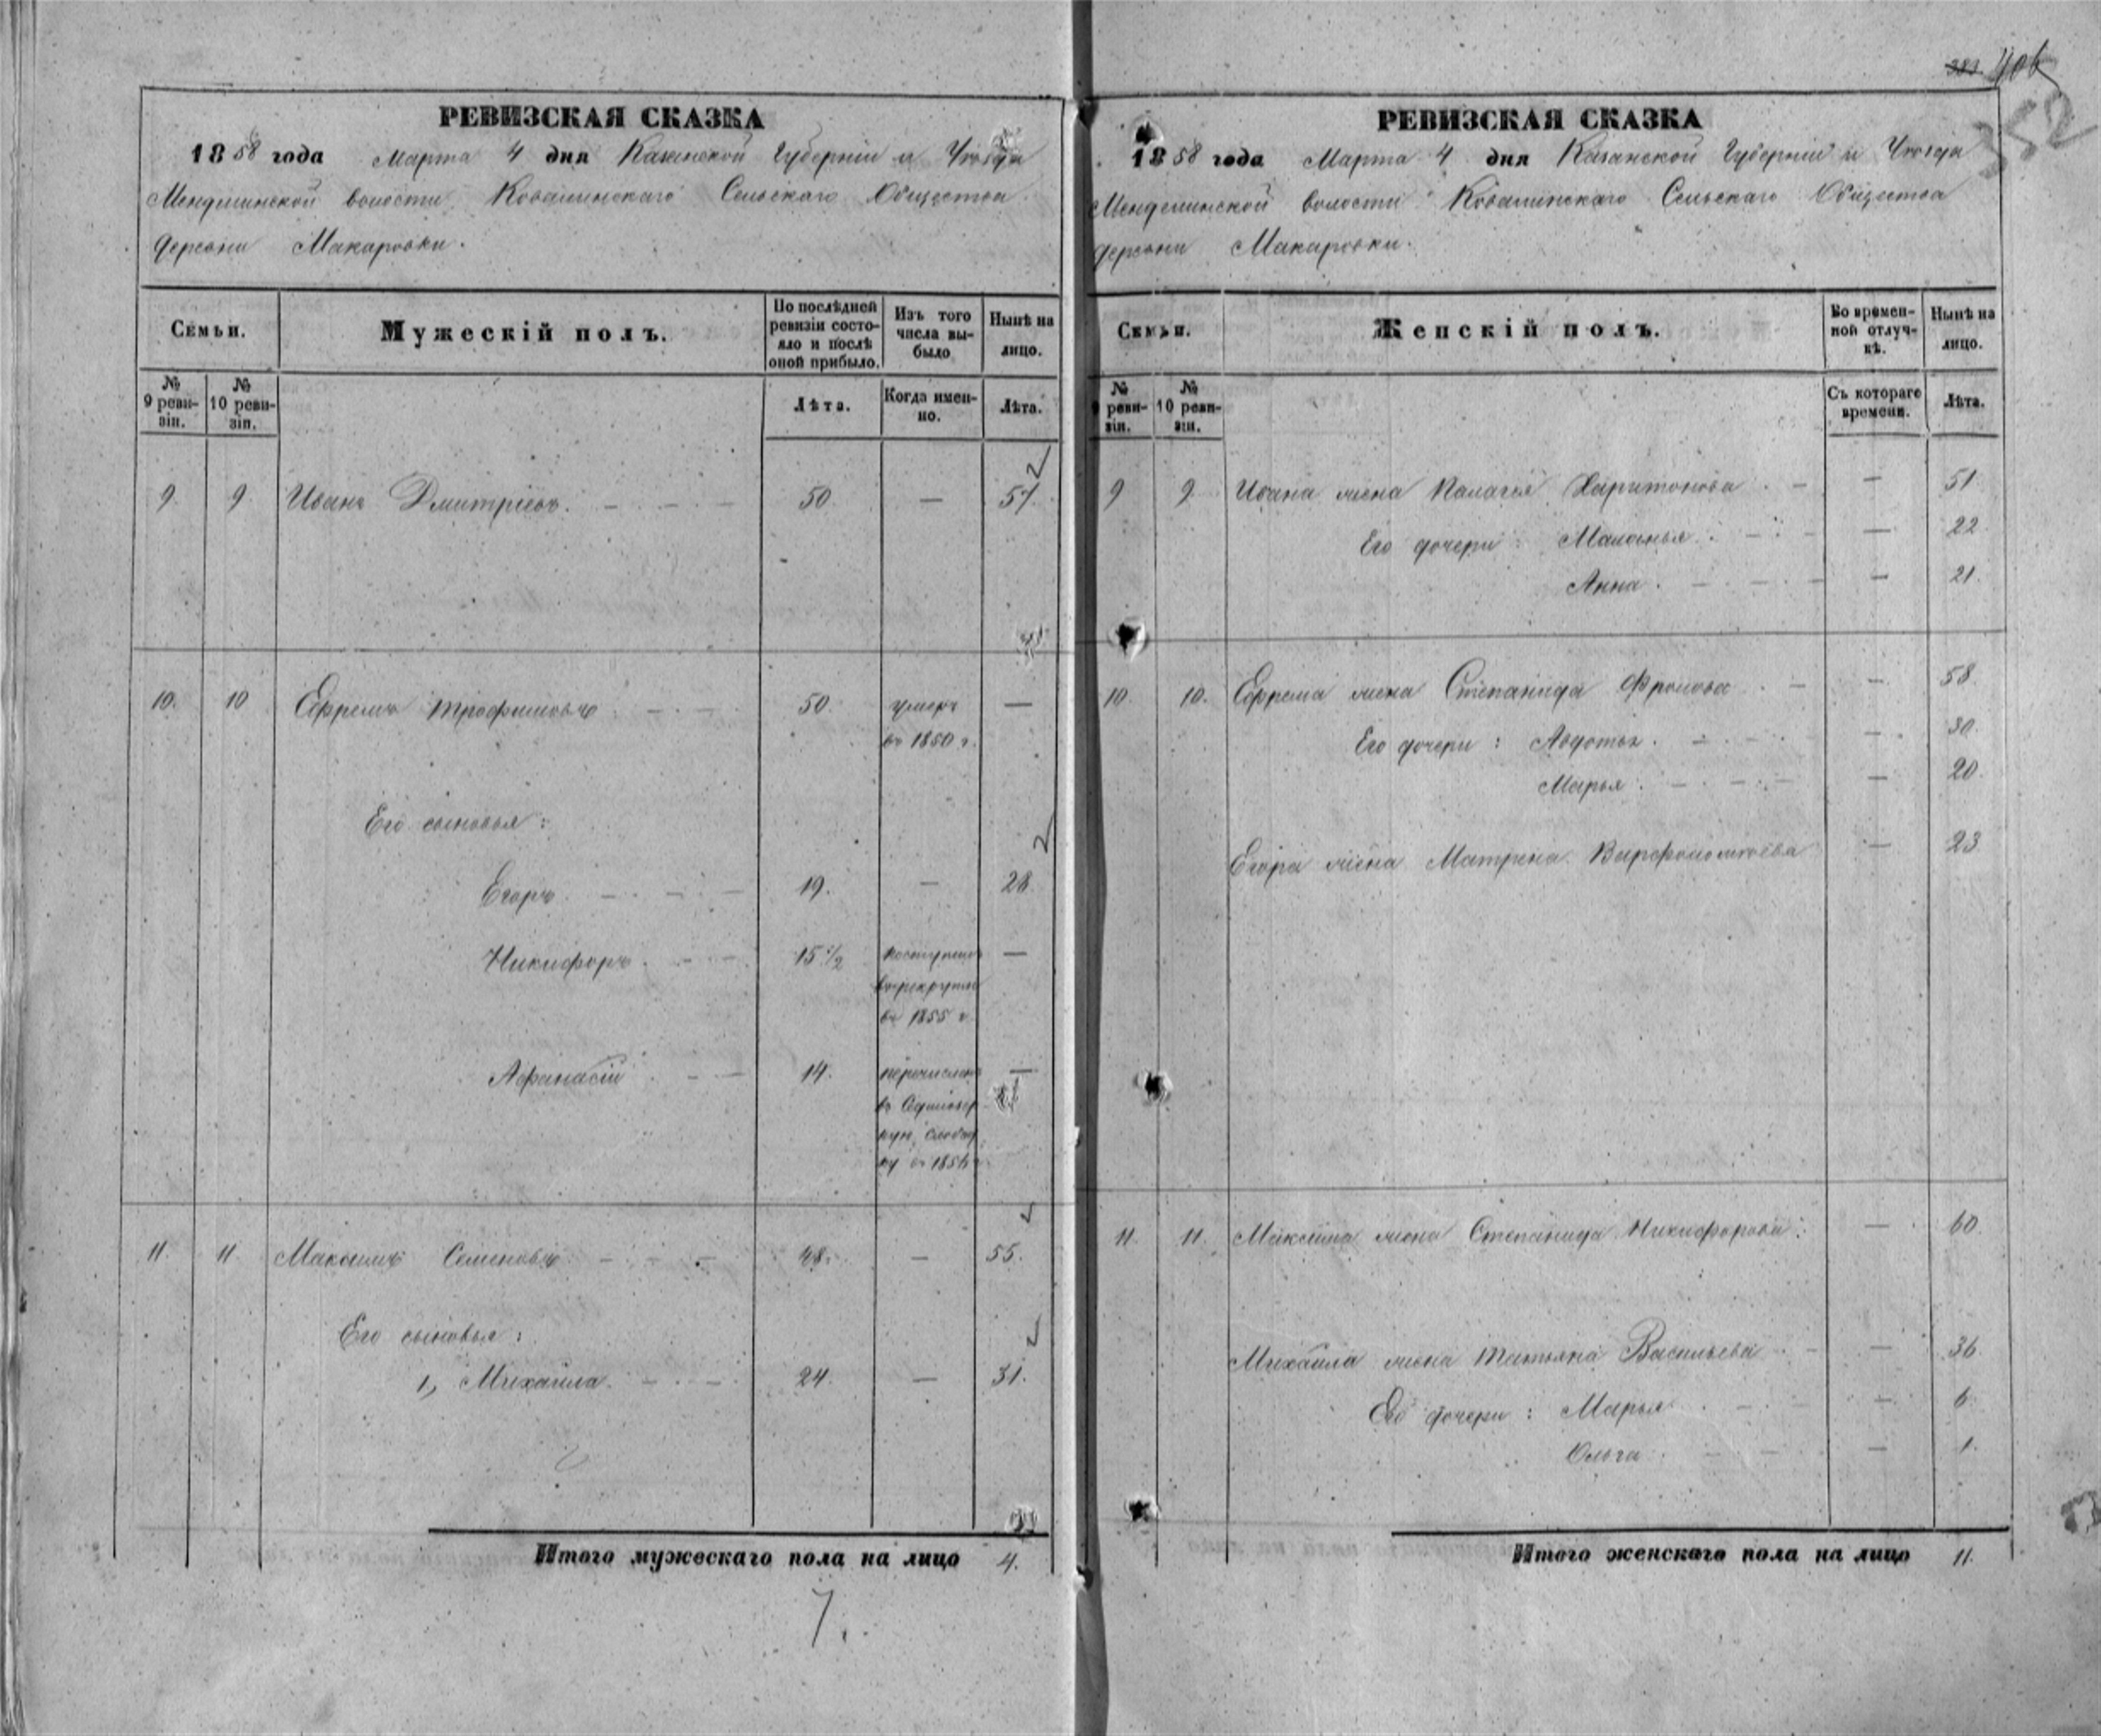 РЕВИЗСКАЯ СКАЗКА
1858 года Марта 4 дня Казанской Губерніи и Уѣзда
волости Ковалинскаго Сельскаго Общества
деревни Макаровки.
Семьи.
Мужескій полъ.
По послѣдней ревизіи состояло и послѣ оной прибыло.
Изъ того числа выбыло
Нынѣ на лицо.
№ 9 ревизіи.
№ 10 ревизіи.
Лѣта.
Когда именно.
Лѣта.
9. 9. Иванъ Дмитріевъ. 50. — 57.
10. 10 Ефремъ Трофимовъ 50. умеръ —
въ 1850 г.
Его сыновья:
Егоръ. 19. — 28.
Никифоръ. 15 1/2 поступилъ —
въ рекруты
въ 1855 г.
Афанасій 14. перечисленъ —
11. 11. Максимъ Семеновъ 48. — 55.
Его сыновья:
1, Михаила. 24. — 31.
Итого мужескаго пола на лицо 4.
7.
383. 406
352
РЕВИЗСКАЯ СКАЗКА
1858 года Марта 4 дня Казанской Губерніи и Уѣзда
волости Ковалинскаго Сельскаго Общества
деревни Макаровки.
Семьи.
Женскій полъ.
Во временной отлучкѣ.
Нынѣ на лицо.
№ ревизіи.
№ 10 ревизіи.
Съ котораго времени.
Лѣта.
9 9. Ивана жена Палагея Харитонова — 51.
Его дочери: Маланья. — 22
Анна. — 21.
10. 10. Ефрема жена Степанида Фролова — 58.
Его дочери: Авдотья. — 30.
Марья. — 20.
Егора жена Матрена Варфоломѣева — 23
11. 11. Максима жена Степанида Никифорова: — 60.
Михаила жена Татьяна Васильева — 36
Его дочери: Марья — 6.
Ольга. — 1.
Итого женскаго пола на лицо 11.